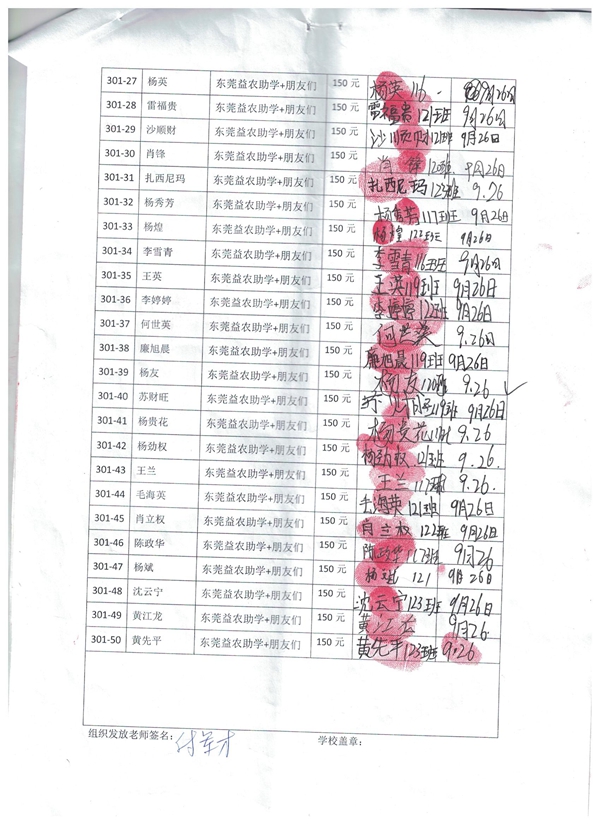 301-27 杨英 东莞益农助学+朋友们 150 元 杨英 116 9月26日
301-28 雷福贵 东莞益农助学+朋友们 150 元 雷福贵 121班 9月26日
301-29 沙顺财 东莞益农助学+朋友们 150 元 沙顺财 121班 9月26日
301-30 肖锋 东莞益农助学+朋友们 150 元 肖锋 120班 9月26日
301-31 扎西尼玛 东莞益农助学+朋友们 150 元 扎西尼玛 123班 9.26
301-32 杨秀芳 东莞益农助学+朋友们 150 元 杨秀芳 117班 9月26日
301-33 杨煌 东莞益农助学+朋友们 150 元 杨煌 123班 9月26日
301-34 李雪青 东莞益农助学+朋友们 150 元 李雪青 116班 9月26日
301-35 王英 东莞益农助学+朋友们 150 元 王英 119班 9月26日
301-36 李婷婷 东莞益农助学+朋友们 150 元 李婷婷 122班 9月26日
301-37 何世英 东莞益农助学+朋友们 150 元 何世英 9.26
301-38 廉旭晨 东莞益农助学+朋友们 150 元 廉旭晨 119班 9月26日
301-39 杨友 东莞益农助学+朋友们 150 元 杨友 120班 9.26
301-40 苏财旺 东莞益农助学+朋友们 150 元 苏财旺 119班 9月26日
301-41 杨贵花 东莞益农助学+朋友们 150 元 杨贵花 9.26
301-42 杨劲权 东莞益农助学+朋友们 150 元 杨劲权 121班 9.26.
301-43 王兰 东莞益农助学+朋友们 150 元 王兰 117班 9.26.
301-44 毛海英 东莞益农助学+朋友们 150 元 毛海英 121班 9月26日
301-45 肖立权 东莞益农助学+朋友们 150 元 肖立权 122班 9月26日
301-46 陈政华 东莞益农助学+朋友们 150 元 陈政华 117班 9月26
301-47 杨斌 东莞益农助学+朋友们 150 元 杨斌 121 9月26日
301-48 沈云宁 东莞益农助学+朋友们 150 元 沈云宁 123班 9月26日
301-49 黄江龙 东莞益农助学+朋友们 150 元 黄江龙 9月26.
301-50 黄先平 东莞益农助学+朋友们 150 元 黄先平 123班 9.26
组织发放老师签名： 付军才 学校盖章：